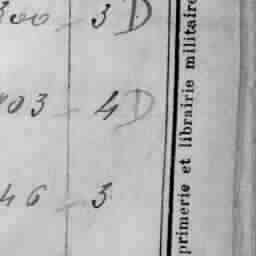 300 - 3 D
03 - 4 D
46 - 3
primerie et librairie militaire